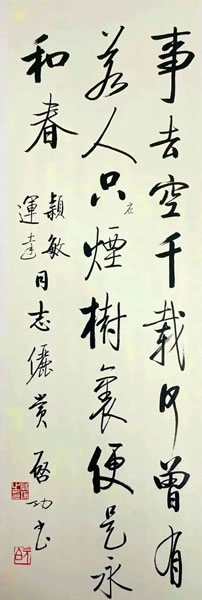 事去空千載何曾有
若人只在煙樹裏便是永
和春
穎敏
運達
同志儷賞 啟功書